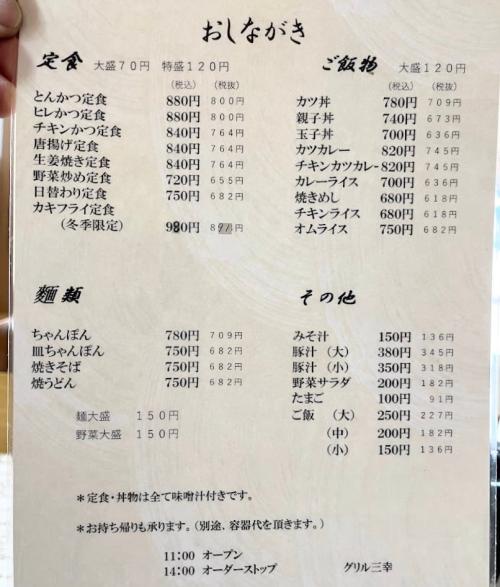 おしながき
定食 大盛70円 特盛120円
(税込) (税抜)
とんかつ定食 880円 800円
ヒレかつ定食 880円 800円
チキンかつ定食 840円 764円
唐揚げ定食 840円 764円
生姜焼き定食 840円 764円
野菜炒め定食 720円 655円
日替わり定食 750円 682円
カキフライ定食
(冬季限定) 980円
ご飯物 大盛120円
(税込) (税抜)
カツ丼 780円 709円
親子丼 740円 673円
玉子丼 700円 636円
カツカレー 820円 745円
チキンカツカレー 820円 745円
カレーライス 700円 636円
焼きめし 680円 618円
チキンライス 680円 618円
オムライス 750円 682円
麺類
ちゃんぽん 780円 709円
皿ちゃんぽん 750円 682円
焼きそば 750円 682円
焼うどん 750円 682円
麺大盛 150円
野菜大盛 150円
その他
みそ汁 150円 136円
豚汁(大) 380円 345円
豚汁(小) 350円 318円
野菜サラダ 200円 182円
たまご 100円 91円
ご飯(大) 250円 227円
(中) 200円 182円
(小) 150円 136円
*定食・丼物は全て味噌汁付きです。
*お持ち帰りも承ります。(別途、容器代を頂きます。)
11:00 オープン
14:00 オーダーストップ グリル三幸